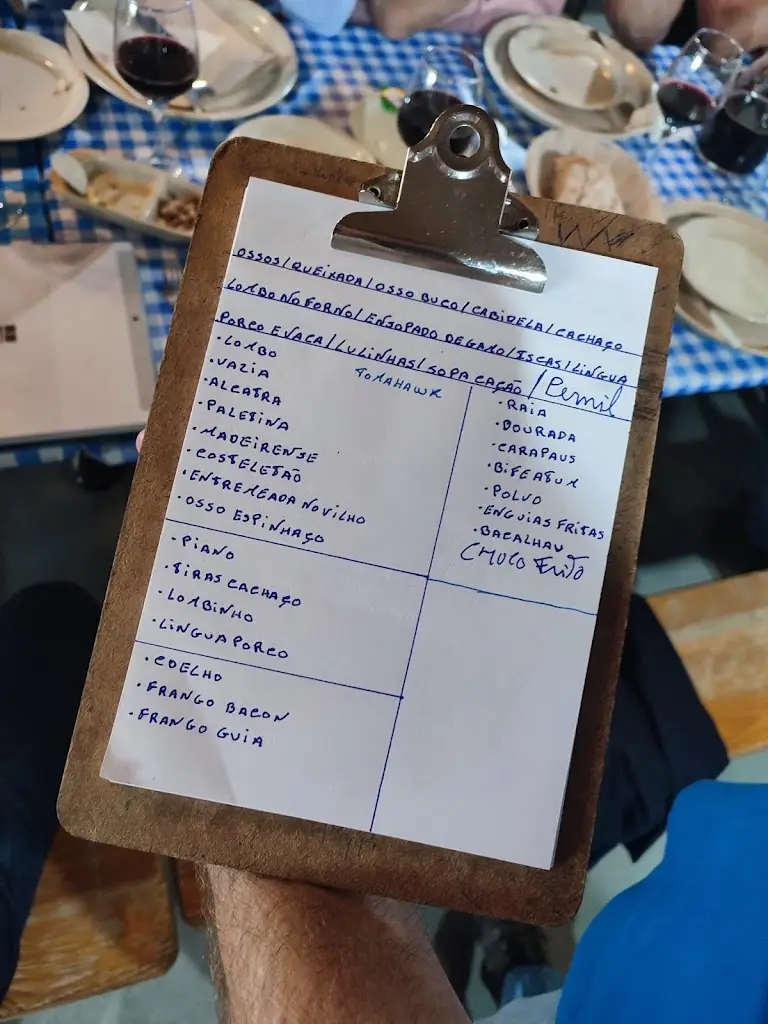 OSSOS/QUEIXADA/OSSO BUCO/CABIDELA/CACHAÇO
LOMBO NO FORNO/ENSOPADO DE GAMO/ISCAS/LINGUA
PORCO E VACA/LULINHAS/SOPA CAÇÃO/Pernil
TOMAHAWK
·LOMBO
·VAZIA
·ALCATRA
·PALETINA
·MADEIRENSE
·COSTELETÃO
·ENTREMEADA NOVILHO
·OSSO ESPINHAÇO
·PIANO
·TIRAS CACHAÇO
·LOMBINHO
·LINGUA PORCO
·COELHO
·FRANGO BACON
·FRANGO GUIA
·RAIA
·DOURADA
·CARAPAUS
·BIFEATUM
·POLVO
·ENGUIAS FRITAS
·BACALHAU
CHOCO FRITO